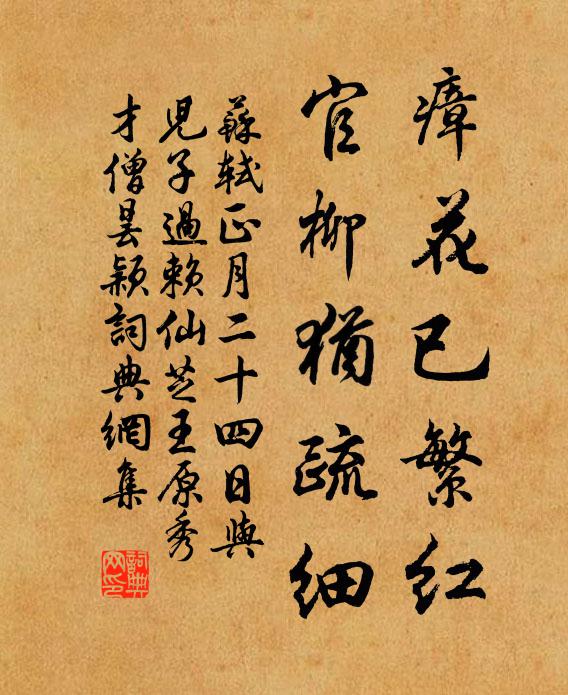 瘴花已繁紅
官柳猶疏細
蘇軾正月二十四日與
児子過賴仙芝王原秀
才僧曇穎詞典網集
詞典网印